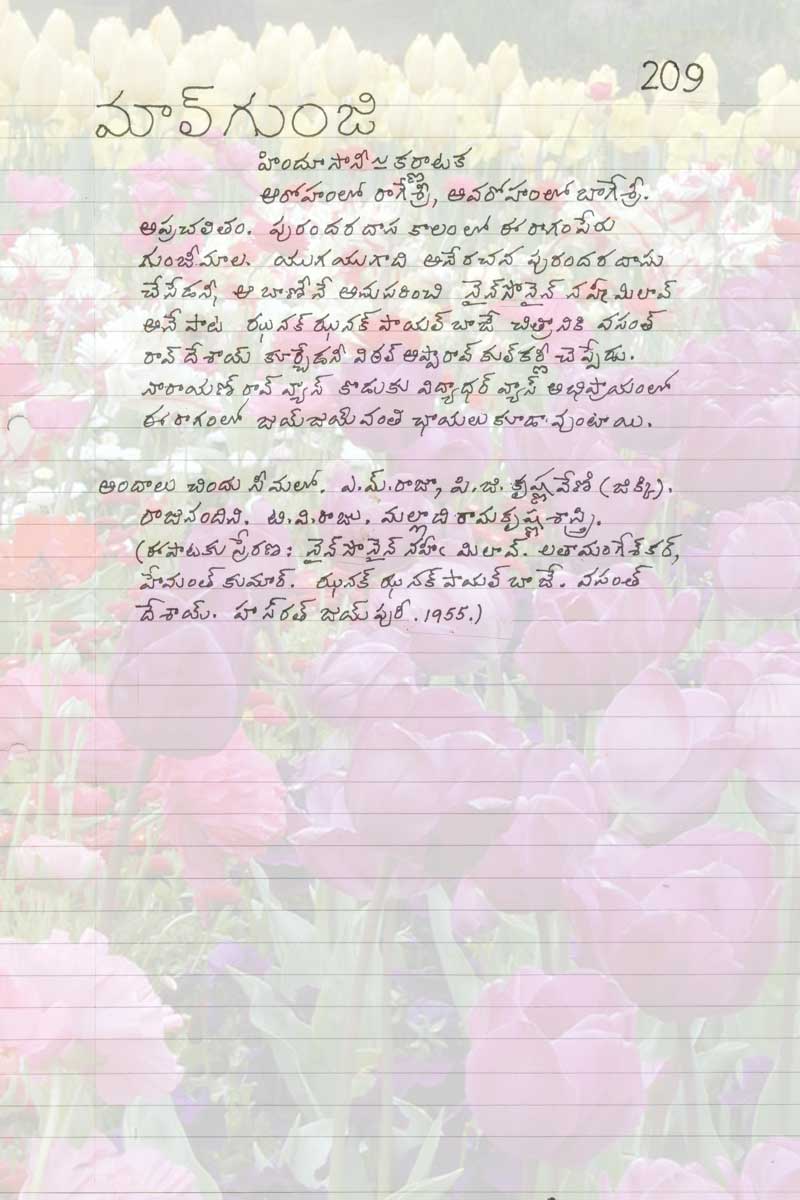 209
మావ్ గుంజి
హిందూసానీ ≃ కర్ణాటక
ఆరోహంలో రాగేశ్రీ, అవరోహంలో బాగేశ్రీ.
అప్రచలితం. పురందరదాస కాలంలో ఈ రాగం పేరు
గుంజీమాల. యుగయుగాది అనే రచన పురందరదాసు
చేసేడనీ, ఆ బాణీనే అనుసరించి నైన్ సొనైన్ నహీ మిలావ్
అనే పాట ఝనక్ ఝనక్ పాయల్ బాజే చిత్రానికి వసంత్
రావ్ దేశాయ్ కూర్చేడనీ విఠల్ అప్పారావ్ కుల్ కర్ణీ చెప్పేడు.
నారాయణ్ రావ్ వ్యాస్ కొడుకు విద్యాధర్ వ్యాస్ అభిప్రాయంలో
ఈ రాగంలో జయ్ జయ్ వంతి ఛాయలు కూడా వుంటాయి.
అందాలు చిందు సీమలో. ఎ.మ్.రాజా, పి.జి. కృష్ణవేణి (జిక్కి).
రాజనందిని. టి.వి.రాజు. మల్లాది రామకృష్ణ శాస్త్రి.
(ఈ పాటకు ప్రేరణ: నైన్ సొనైన్ నహీఁ మిలావ్. లతామంగేశ్కర్,
హేమంత్ కుమార్. ఝనక్ ఝనక్ పాయల్ బాజే. వసంత్
దేశాయ్. హస్రత్ జయ్ పురీ. 1955.)